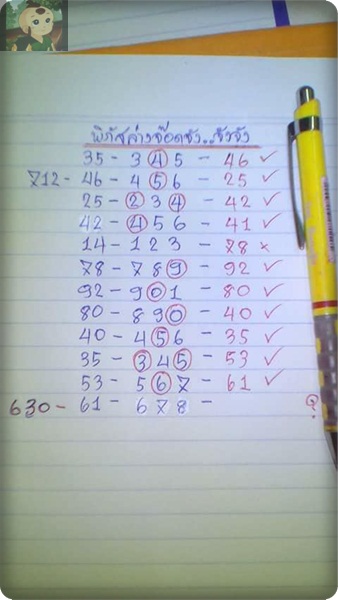 พิภัสล่างจ๊อดซัง..จังจัง
35 - 3 4 5 - 46 ✓
712 - 46 - 4 5 6 - 25 ✓
25 - 2 3 4 - 42 ✓
42 - 4 5 6 - 41 ✓
14 - 1 2 3 - 78 ×
78 - 7 8 9 - 92 ✓
92 - 9 0 1 - 80 ✓
80 - 8 9 0 - 40 ✓
40 - 4 5 6 - 35 ✓
35 - 3 4 5 - 53 ✓
53 - 5 6 7 - 61 ✓
630 - 61 - 6 7 8 - ?